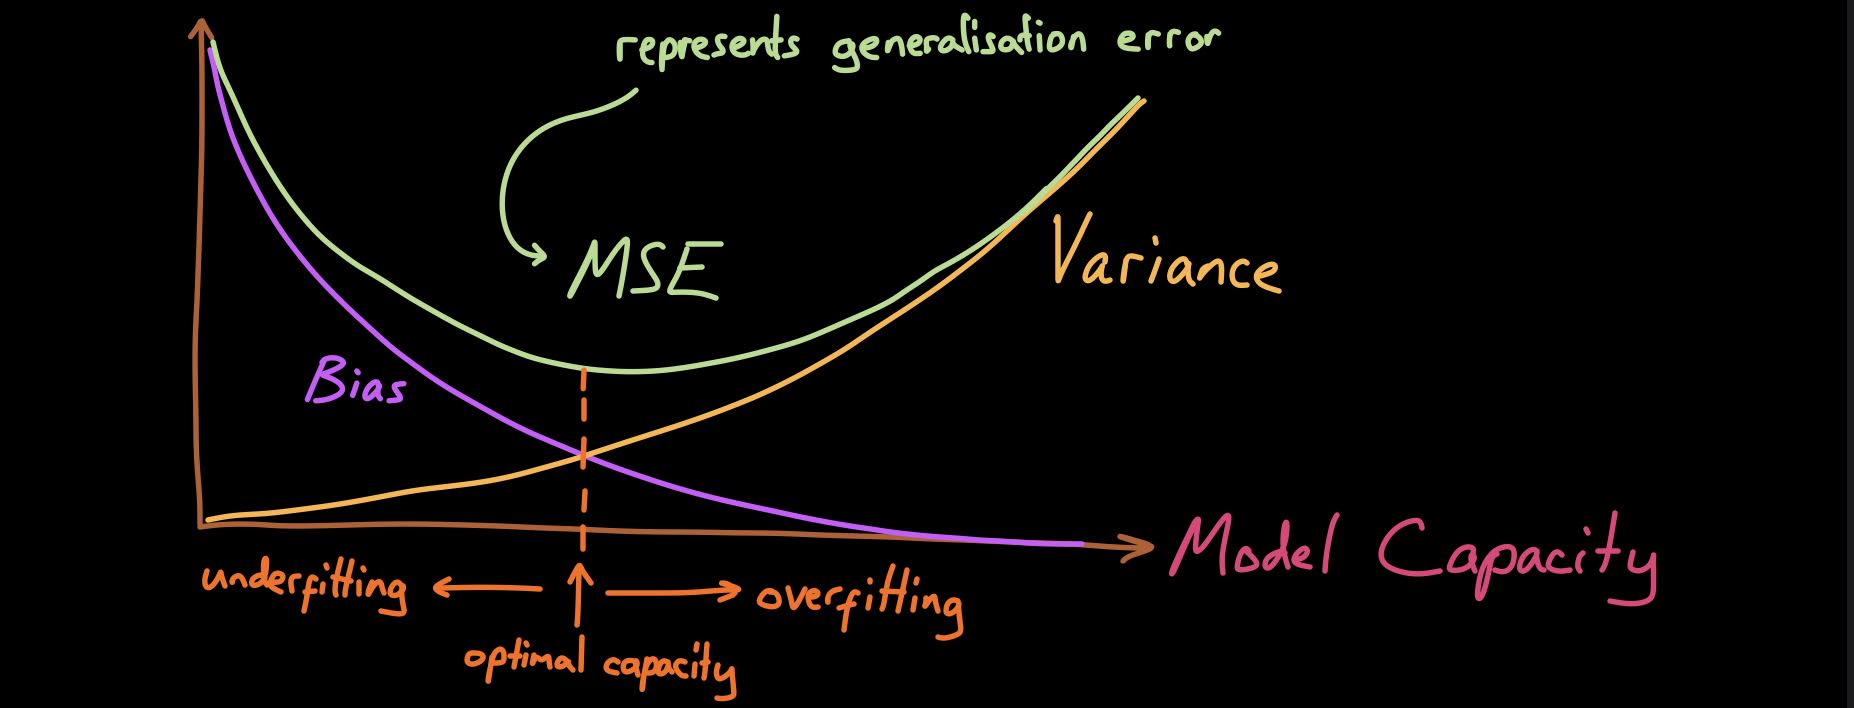 represents generalisation error
MSE
Variance
Bias
Model Capacity
underfitting
overfitting
optimal capacity